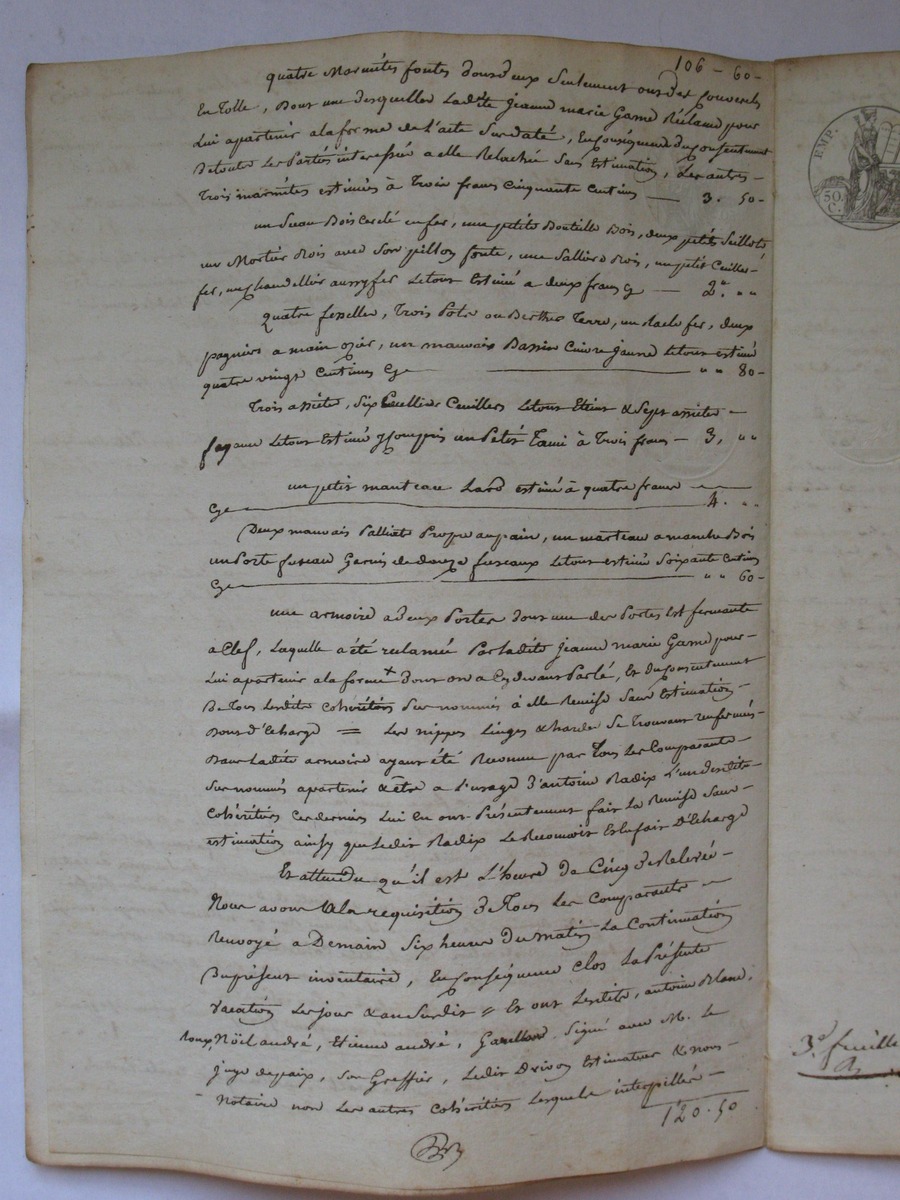 106 - 60 -
quatre Marmites fontes dont deux Seulement ont des Couvercles
En Tolle, Dont une desquelles Ladite jeanne marie Game Réclame pour
Lui apartenir a la forme de L'acte Sus daté, En Conséquence du Consentement
De toutes Les Parties intéressée a elle Relachée Sans Estimation, Les autres -
Trois marmites estimées à Trois francs Cinquante Centimes — 3. 50 -
un Seau Bois Cerclé en fer, une petite Bouteille Bois, deux petits Seillots
un Mortier Bois avec Son pillon fonte, une Sallière Bois, un petit Cuiller
fer, un Chandellier aussy fer Le tout Estimé a deux francs Cy — 2. " "
Quatre feselles, Trois Pots ou Berthes Terre, un racle fer, deux
pagniers a main ozier, un mauvais Bassin Cuivre jaune Le tout estimé
quatre vingt Centimes Cy — " " 80 -
Trois assiètes, Six Cuilliers Le tout Etain & Sept assiètes -
fayance Le tout Estimé y Compris un Petit Tami à Trois francs — 3, " "
un petit manteau Lard estimé à quatre francs
Cy — 4. " "
Deux mauvais Palliat Propre au pain, un marteau a manche Bois
un Porte fuseau Garni de douze fuseaux Le tout estimé Soixante Centimes
Cy — " " 60 -
une armoire a deux Portes dont une des Portes Est fermante
a Clef, Laquelle a été reclamée Par ladite jeanne marie Game pour -
Lui apartenir a la forme + Dont on a Cy devant Parlé, Et du Consentement
De Tous Lesdits cohéritiers Sus nommés à elle Remise Sans Estimation -
Dont d'Echarge = Les nippes Linges & hardes Se Trouvant renfermés -
Dans Ladite armoire ayant été Reconnu par Tous Les Comparants -
Sus nommés apartenir & être a L'usage d'antoine Radix L'un desdits
Cohéritiers Ces derniers Lui En ont Présentement fait La Remise Sans -
estimation ainsy que Ledit Radix Le Reconnoit Et En fait D'Echarge
Et attendu qu'il est L'heure de Cinq de Relevée -
Nous avons a la requisition de Tous Les Comparants -
Renvoyé a Demain Six heures Du matin La Continuation
Du présent inventaire, En Conséquence Clos La Présente
Vacation Les jour & an Susdit = Et ont Lesdits, antoine Blanc,
Noël andré, Etienne andré, Signé avec M. Le
juge de paix, Son Greffier, Ledit Drivon Estimateur & nous -
Notaire non Les autres Cohéritiers Lesquels interpellés -
120 . 50
EMP.
50 C.
3.e feuille